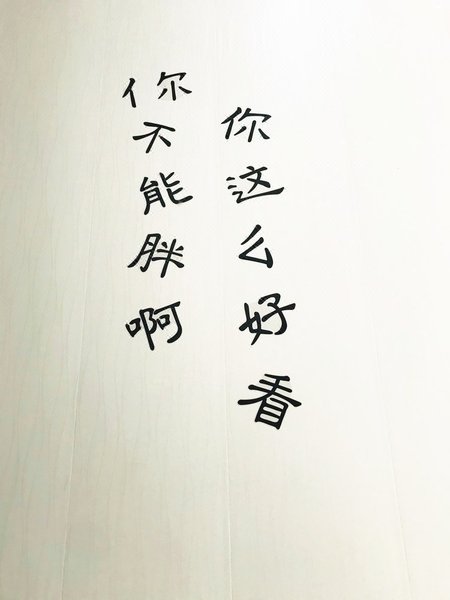 你不能胖啊
你这么好看